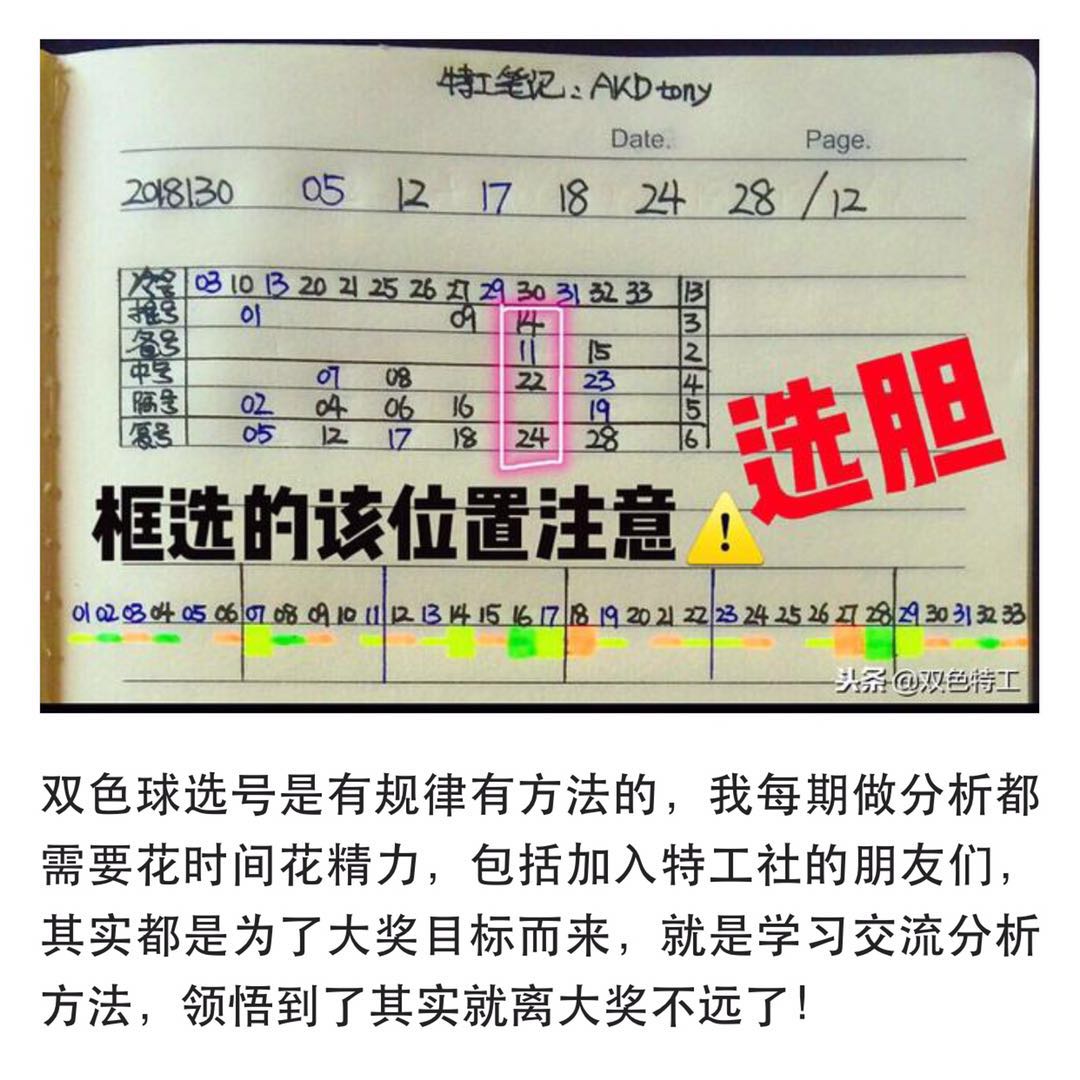 特工笔记：AKDtony
Date. Page.
2018130 05 12 17 18 24 28 / 12
冷号 03 10 13 20 21 25 26 27 29 30 31 32 33 13
推号 01 09 14 3
备号 11 15 2
中号 07 08 22 23 4
隔号 02 04 06 16 19 5
复号 05 12 17 18 24 28 6
选胆
框选的该位置注意
01 02 03 04 05 06 07 08 09 10 11 12 13 14 15 16 17 18 19 20 21 22 23 24 25 26 27 28 29 30 31 32 33
头条 @双色特工
双色球选号是有规律有方法的，我每期做分析都
需要花时间花精力，包括加入特工社的朋友们，
其实都是为了大奖目标而来，就是学习交流分析
方法，领悟到了其实就离大奖不远了！